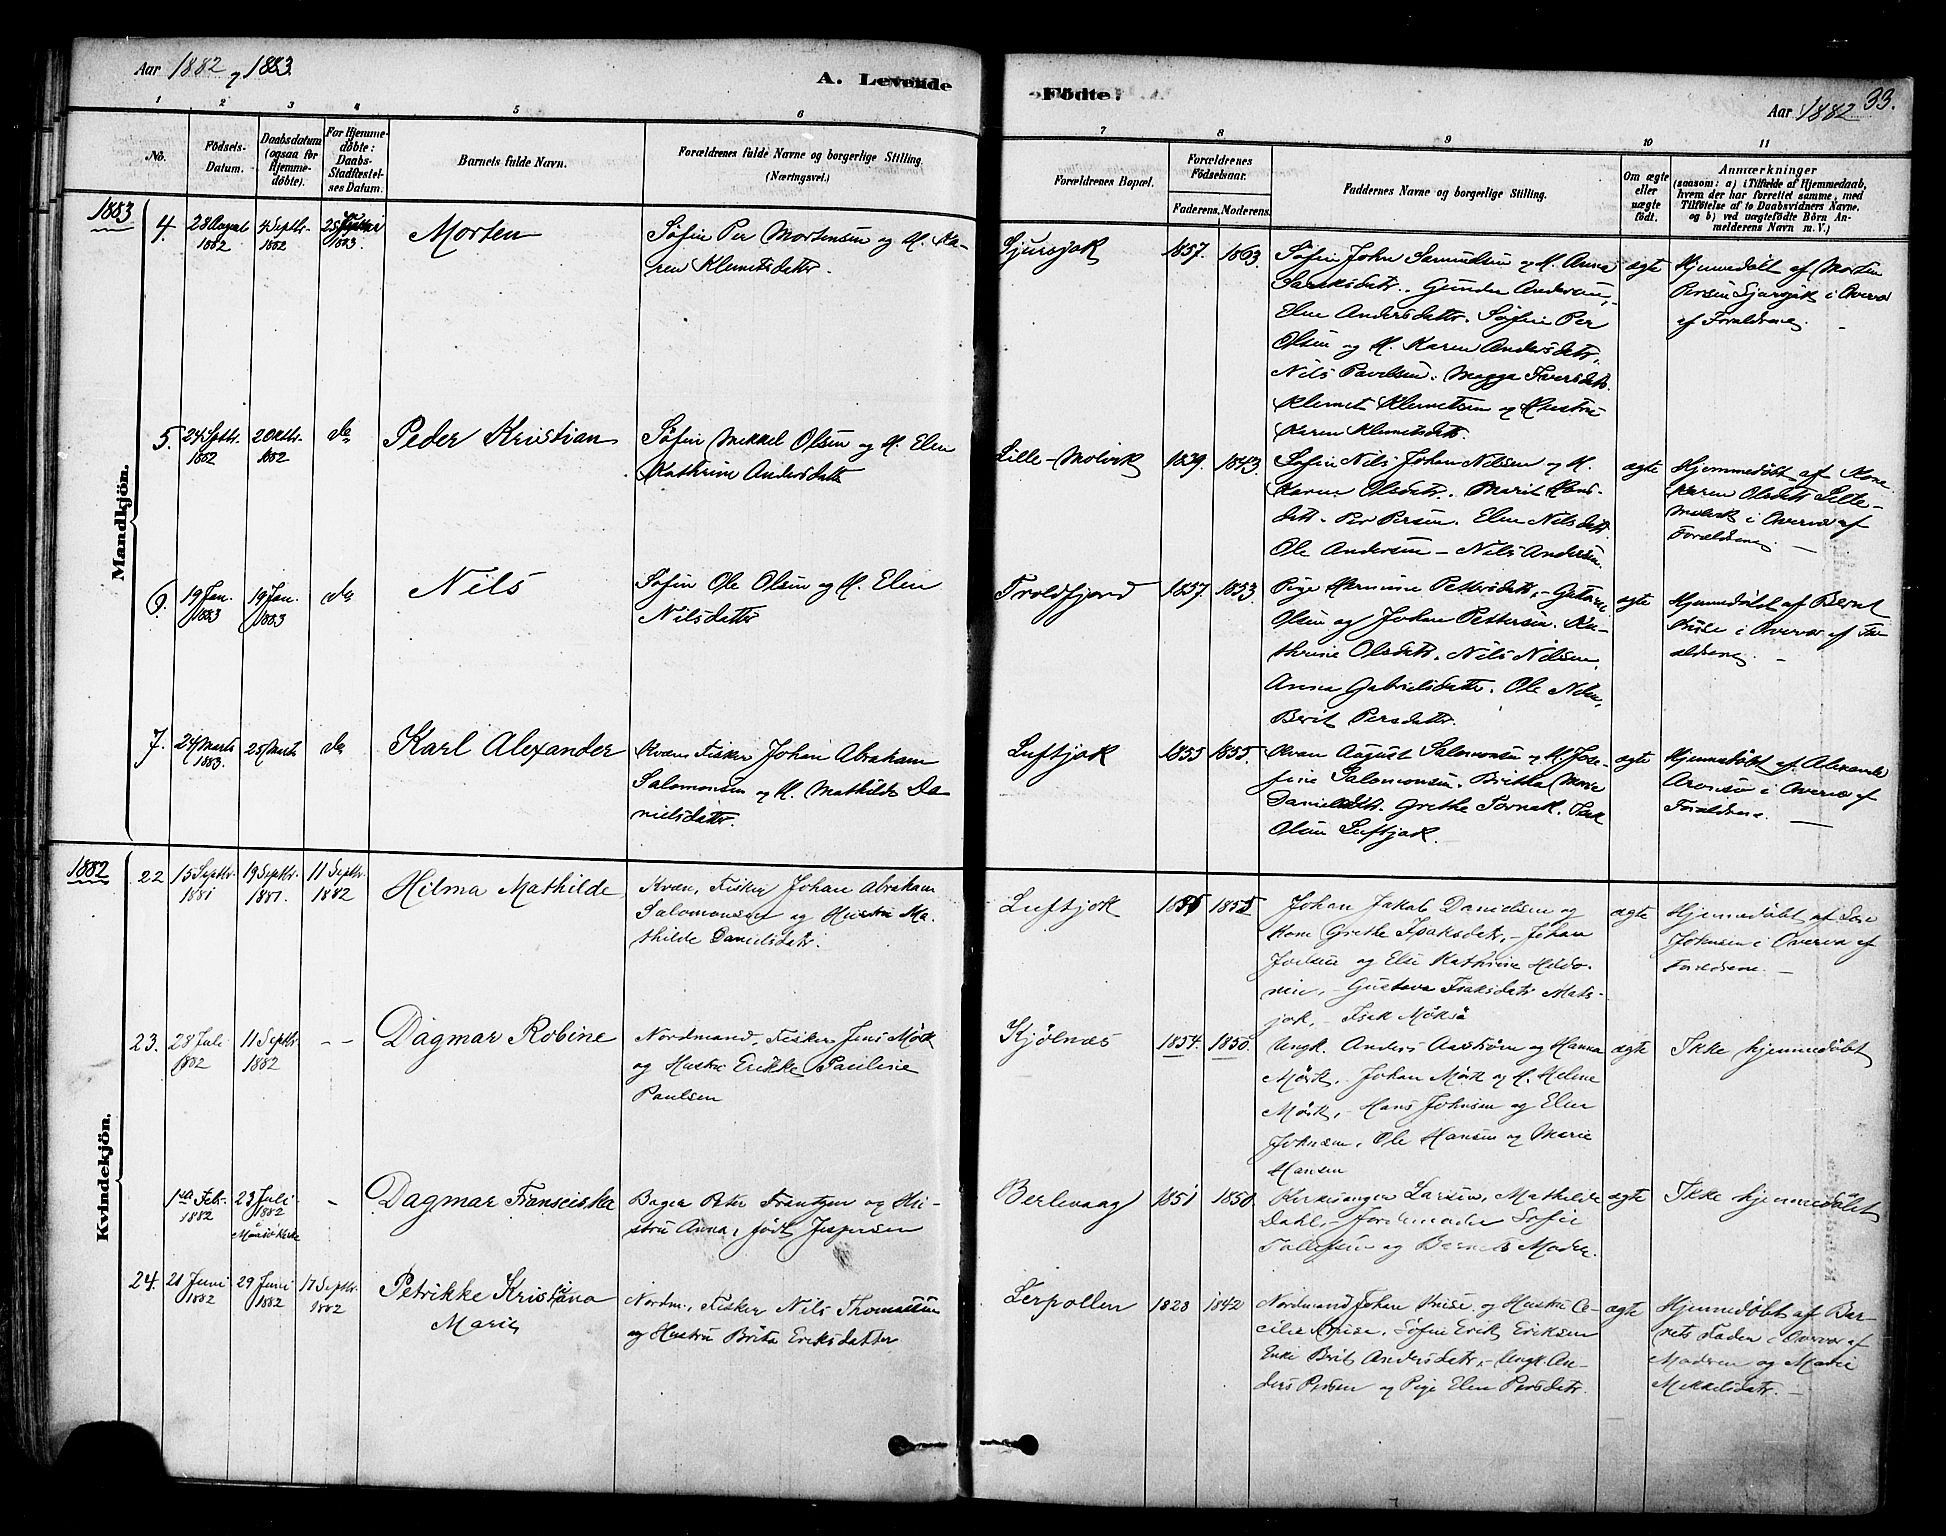 Aar 1882 og 1883.
A. Levende
Födte.
Aar 1882
33.
1 2 3 4 5 6
7 8 9 10 11
No.
Födsels-
Datum.
Daabsdatum
(ogsaa for
Hjemme-
döbte).
For Hjemme-
döbte:
Daabs-
Stadfæstel-
ses Datum.
Barnets fulde Navn.
Forældrenes fulde Navne og borgerlige Stilling.
(Næringsvei.)
Forældrenes Bopæl.
Forældrenes
Födselsaar.
Faderens. Moderens.
Faddernes Navne og borgerlige Stilling.
Om ægte
eller
uægte
födt.
Anmærkninger
(saasom: a) i Tilfælde af Hjemmedaab,
hvem der har forrettet samme, med
Tilföielse af to Daabsvidners Navne,
og b) ved uægtefödte Börn An-
melderens Navn m. V.)
Mandkjön.
1883
4.
28 August
1882
4 Septbr.
1882
1883.
Morten
Søfin Per Mortensen og H. Ka-
ren Klemetsdatter.
1857. 1863.
Søfin John Samuelsen og H. Anna
Gunder Andersen,
Elen Andersdattr. Søfin Per
Olsen og H. Karen Andersdatr.
Nils Pavelsen. Magga Iversdatr.
Klemet Klemetsen og Hustru
Karen Klemetsdatr.
ægte
Hjemmedøbt af Morten
Persen i Overvær
af Forældrene.
5.
24 Septbr.
1882
2 Oktbr.
1882
do
Peder Kristian
Søfin Mikkel Olsen og H. Elen
Kathrine Andersdatter
Lille-Molvik
1839. 1843.
Søfin Nils Johan Nilsen og H.
Karen Olsdatr. Marit Hans-
datr. Per Persen. Elen Nilsdatr.
Ole Andersen - Nils Andersen.
ægte
Hjemmedøbt af Kone
Karen Olsdatr. Lille-
Molvik i Overvær af
Forældrene. -
6.
19 Jan.
1883
19 Jan.
1883
do
Nils
Søfin Ole Olsen og H. Elen
Nilsdatter
Troldfjord
1857. 1853.
Pige Hermine Pettersdatr, -
Olsen og Johan Pettersen. Ka-
thrine Olsdatr. Nils Nilsen,
Anna Gabrielsdatr. Ole Nilsen,
Berit Persdatter.
ægte
Hjemmedøbt af Bernt
i Overvær af For-
ældrene. -
7.
24 Marts
1883.
25 Marts
do
Karl Alexander
Kvæn Fisker Johan Abraham
Salomonsen og H. Mathilde Da-
nielsdatter.
Luftjok
1855 1855.
Kvæn August Salomonsen og H. Jose-
fine Salomonsen. Britha Marie
Danielsdtr. Grethe Tornak. Isak
Olsen Luftjok.
ægte
Hjemmedøbt af Alexander
i Overvær af
Forældrene. -
Kvindekjön.
1882
22
15 Septbr.
1881
19 Septbr.
1881.
11 Septbr.
1882
Hilma Mathilde
Kvæn, Fisker Johan Abraham
Salomonsen og Hustru Ma-
thilde Danielsdatr.
Luftjok
1855 1855
Johan Jakob Danielsen og
Kone Grethe Isaksdatr, - Johan
Joelsen og Else Kathrine
Gustava Isaksdatr Mats-
jok, - Isak
ægte
Hjemmedøbt af
Johnsen i Overvær af
Forældrene. -
23.
28 Juli
1882
11 Septbr
1882
- -
Dagmar Robine
Nordmand, Fisker Jens Mørk
og Hustru Erikke Pauline
Paulsen
Kjölnæs
1854. 1850.
Ungk. Anders Aastrøm og Hanna
Mørk, - Johan Mørk og H. Helene
Mørk, - Hans Johnsen og Elen
Johnsen, Ole Hansen og Marie
Hansen
ægte
Ikke hjemmedöbt
1ste Febr.
1882
23 Juli
1882
-
Dagmar Franseiska
Bager Peter Frantzen og Hu-
stru Anna, født Jespersen
Berlevaag
1851 1850.
Kirkesanger Larsen, Mathilde
Dahl, - Jordemoder Sofie
Tollefsen og Barnets Moder.
ægte
Ikke hjemmedöbt
24.
21 Juni
1882
29 Juni
1882
17 Septbr.
1882
Petrikke Kristiana
Marie
Nordm. Fisker Nils Thomassen
og Hustru Brita Eriksdatter
Lerpollen
1823 1842
Nordmand Johan Kruse og Hustru Ce-
cilie Kruse. Søfin Erik Eriksen
Enke Berit Andersdatr, - Ungk. An-
ders Persen og Pige Elen Persdatr.
ægte
Hjemmedøbt af Bar-
nets Fader i Overvær af
Moderen og Marie
Mikkelsdatr. -